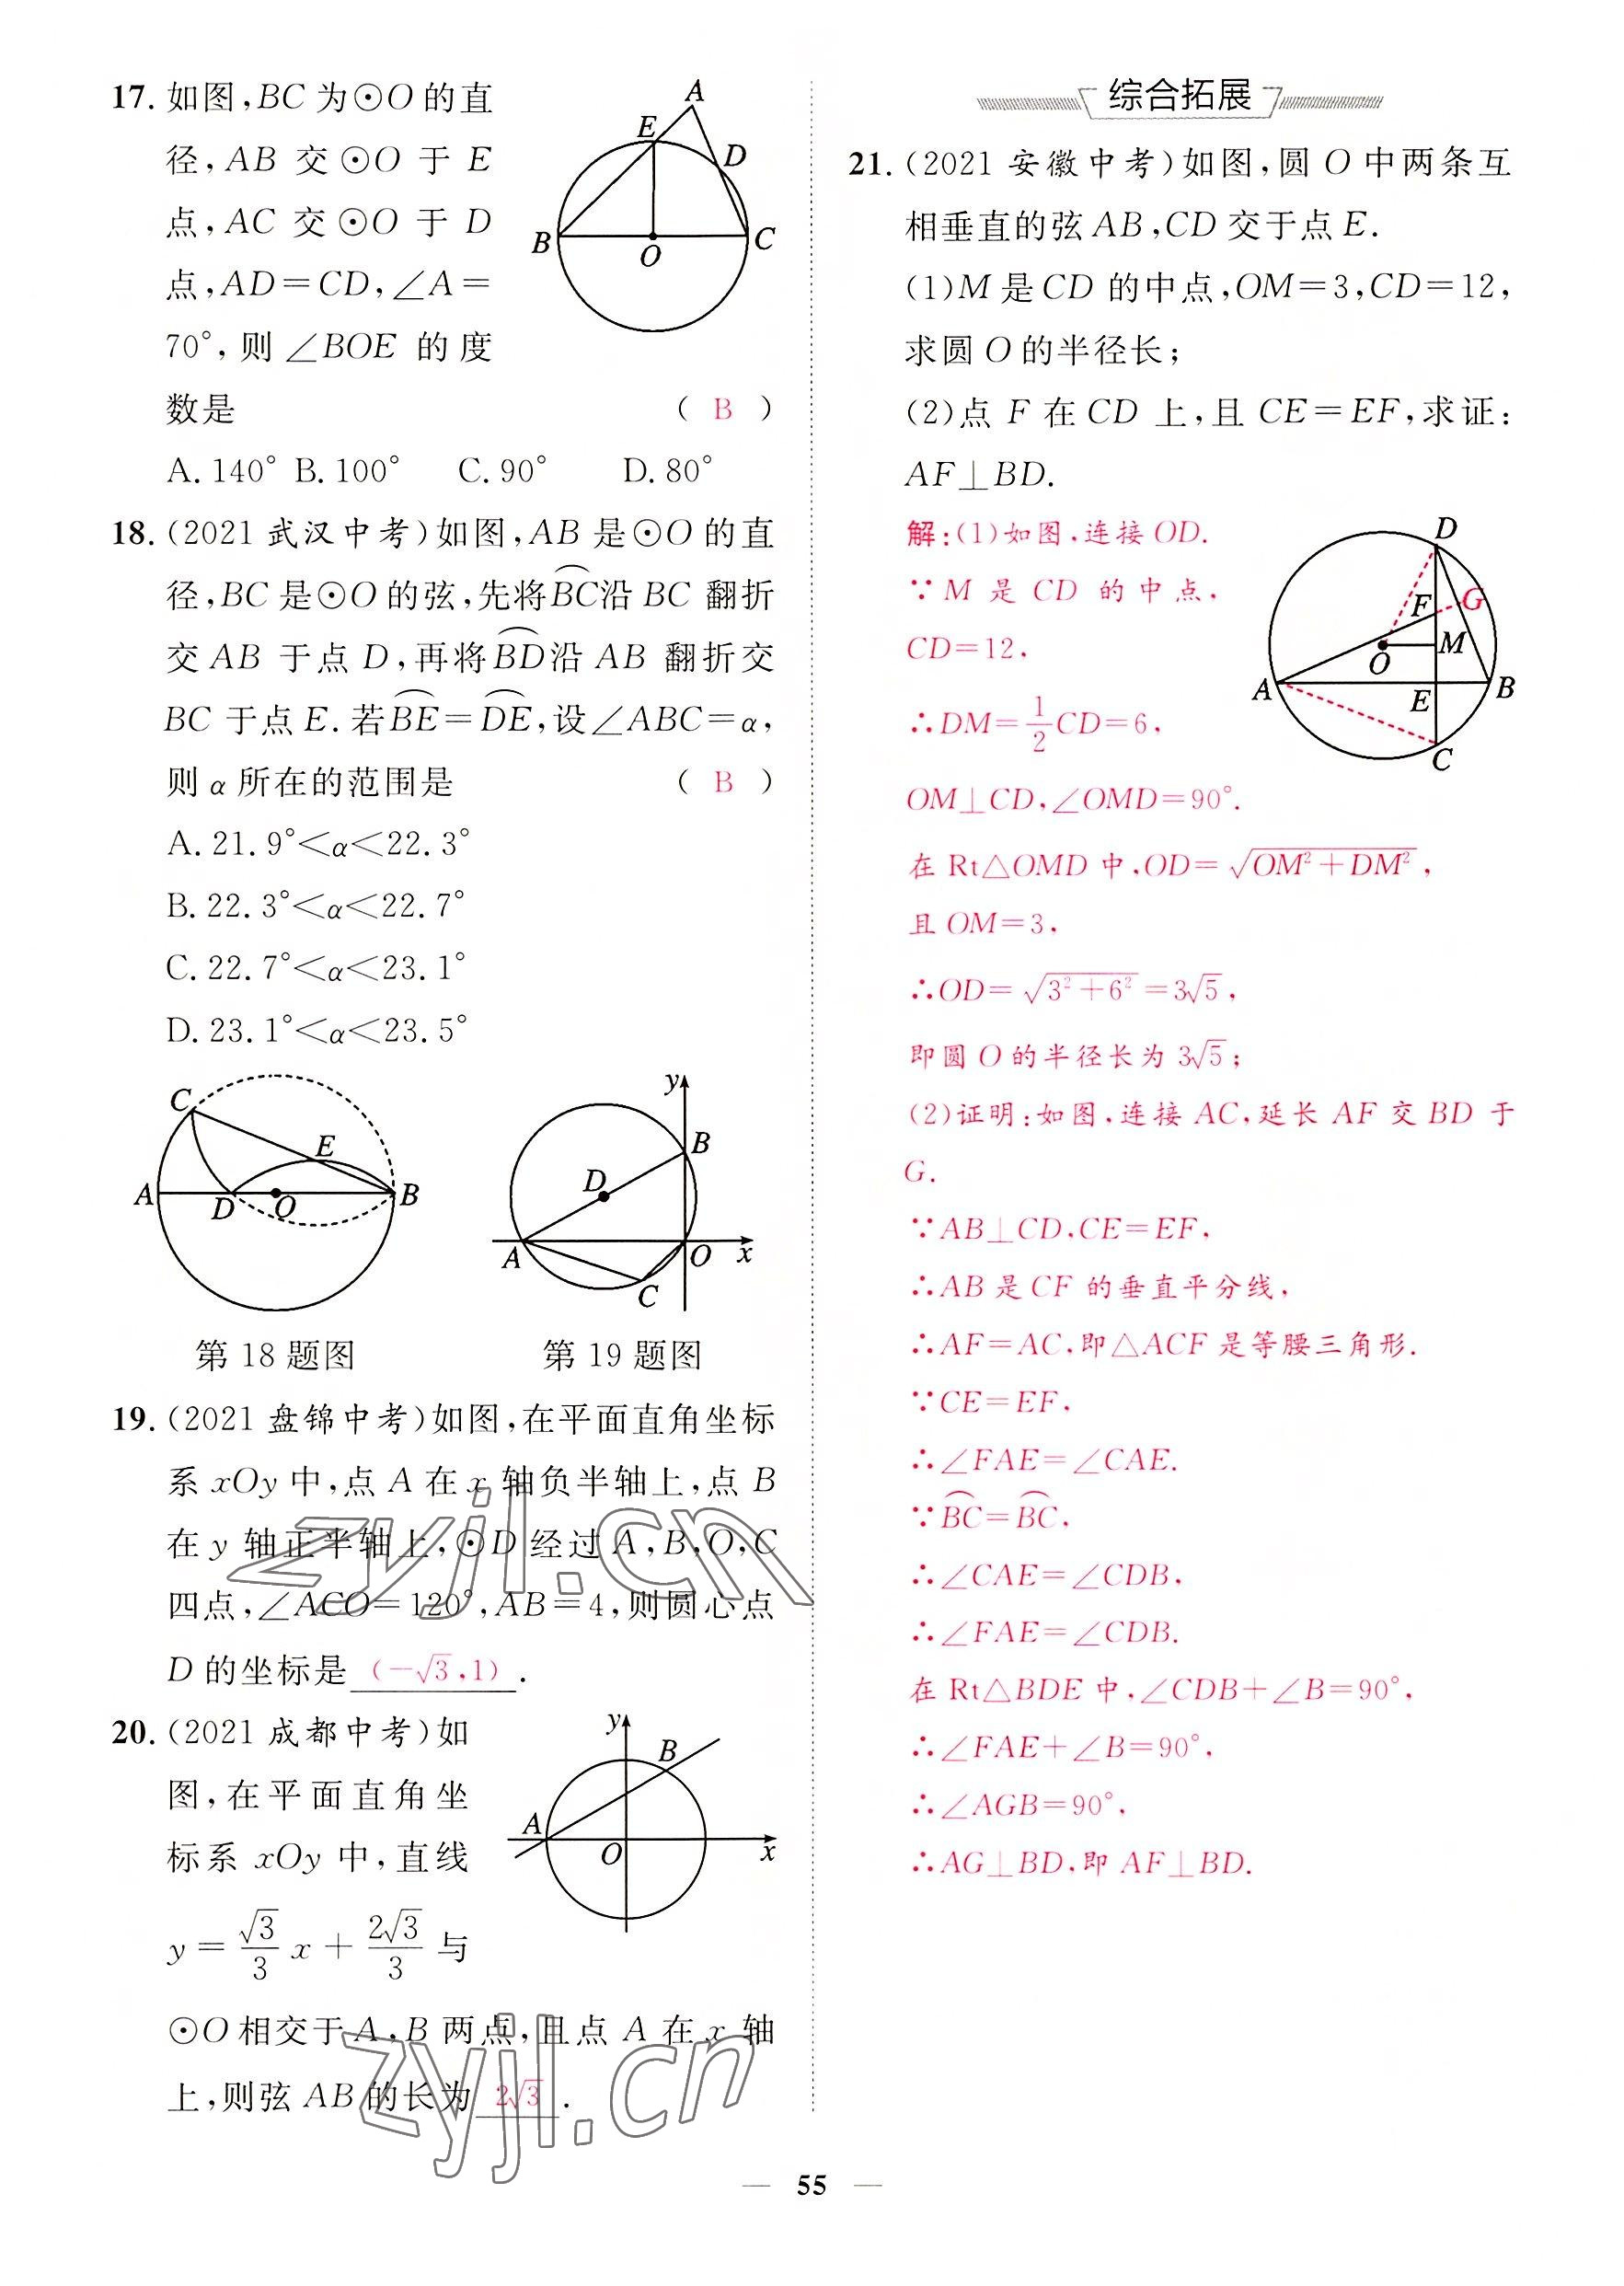 17. 如图,BC 为⊙O 的直
径,AB 交 ⊙O 于 E
点,AC 交 ⊙O 于 D
点,AD=CD,∠A=
70°,则∠BOE 的度
数是 ( B )
A. 140° B. 100° C. 90° D. 80°
A
E
D
B
O
C
18. (2021 武汉中考)如图,AB 是⊙O 的直
径,BC 是⊙O 的弦,先将⌒BC沿 BC 翻折
交 AB 于点 D,再将⌒BD沿 AB 翻折交
BC 于点 E. 若⌒BE=⌒DE,设∠ABC=α,
则 α 所在的范围是 ( B )
A. 21. 9°<α<22. 3°
B. 22. 3°<α<22. 7°
C. 22. 7°<α<23. 1°
D. 23. 1°<α<23. 5°
C
E
A
D
O
B
第 18 题图
y
B
D
A
O
x
C
第 19 题图
19. (2021 盘锦中考)如图,在平面直角坐标
系 xOy 中,点 A 在 x 轴负半轴上,点 B
在 y 轴正半轴上,⊙D 经过 A,B,O,C
四点,∠ACO=120°,AB=4,则圆心点
D 的坐标是 (-√3,1) .
20. (2021 成都中考)如
图,在平面直角坐
标系 xOy 中,直线
y=√3/3 x+2√3/3 与
⊙O 相交于 A,B 两点,且点 A 在 x 轴
上,则弦 AB 的长为 2√3 .
y
B
A
O
x
综合拓展
21. (2021 安徽中考)如图,圆 O 中两条互
相垂直的弦 AB,CD 交于点 E.
(1)M 是 CD 的中点,OM=3,CD=12,
求圆 O 的半径长;
(2)点 F 在 CD 上,且 CE=EF,求证:
AF⊥BD.
解:(1)如图,连接 OD.
∵M 是 CD 的中点,
CD=12,
∴DM=1/2CD=6,
OM⊥CD,∠OMD=90°.
在 Rt△OMD 中,OD=√(OM²+DM²),
且 OM=3,
∴OD=√(3²+6²)=3√5,
即圆 O 的半径长为 3√5;
D
F
G
O
M
A
E
B
C
(2)证明:如图,连接 AC,延长 AF 交 BD 于
G.
∵AB⊥CD,CE=EF,
∴AB 是 CF 的垂直平分线,
∴AF=AC,即△ACF 是等腰三角形.
∵CE=EF,
∴∠FAE=∠CAE.
∵⌒BC=⌒BC,
∴∠CAE=∠CDB,
∴∠FAE=∠CDB.
在 Rt△BDE 中,∠CDB+∠B=90°,
∴∠FAE+∠B=90°,
∴∠AGB=90°,
∴AG⊥BD,即 AF⊥BD.
zyjl.cn
zyjl.cn
— 55 —